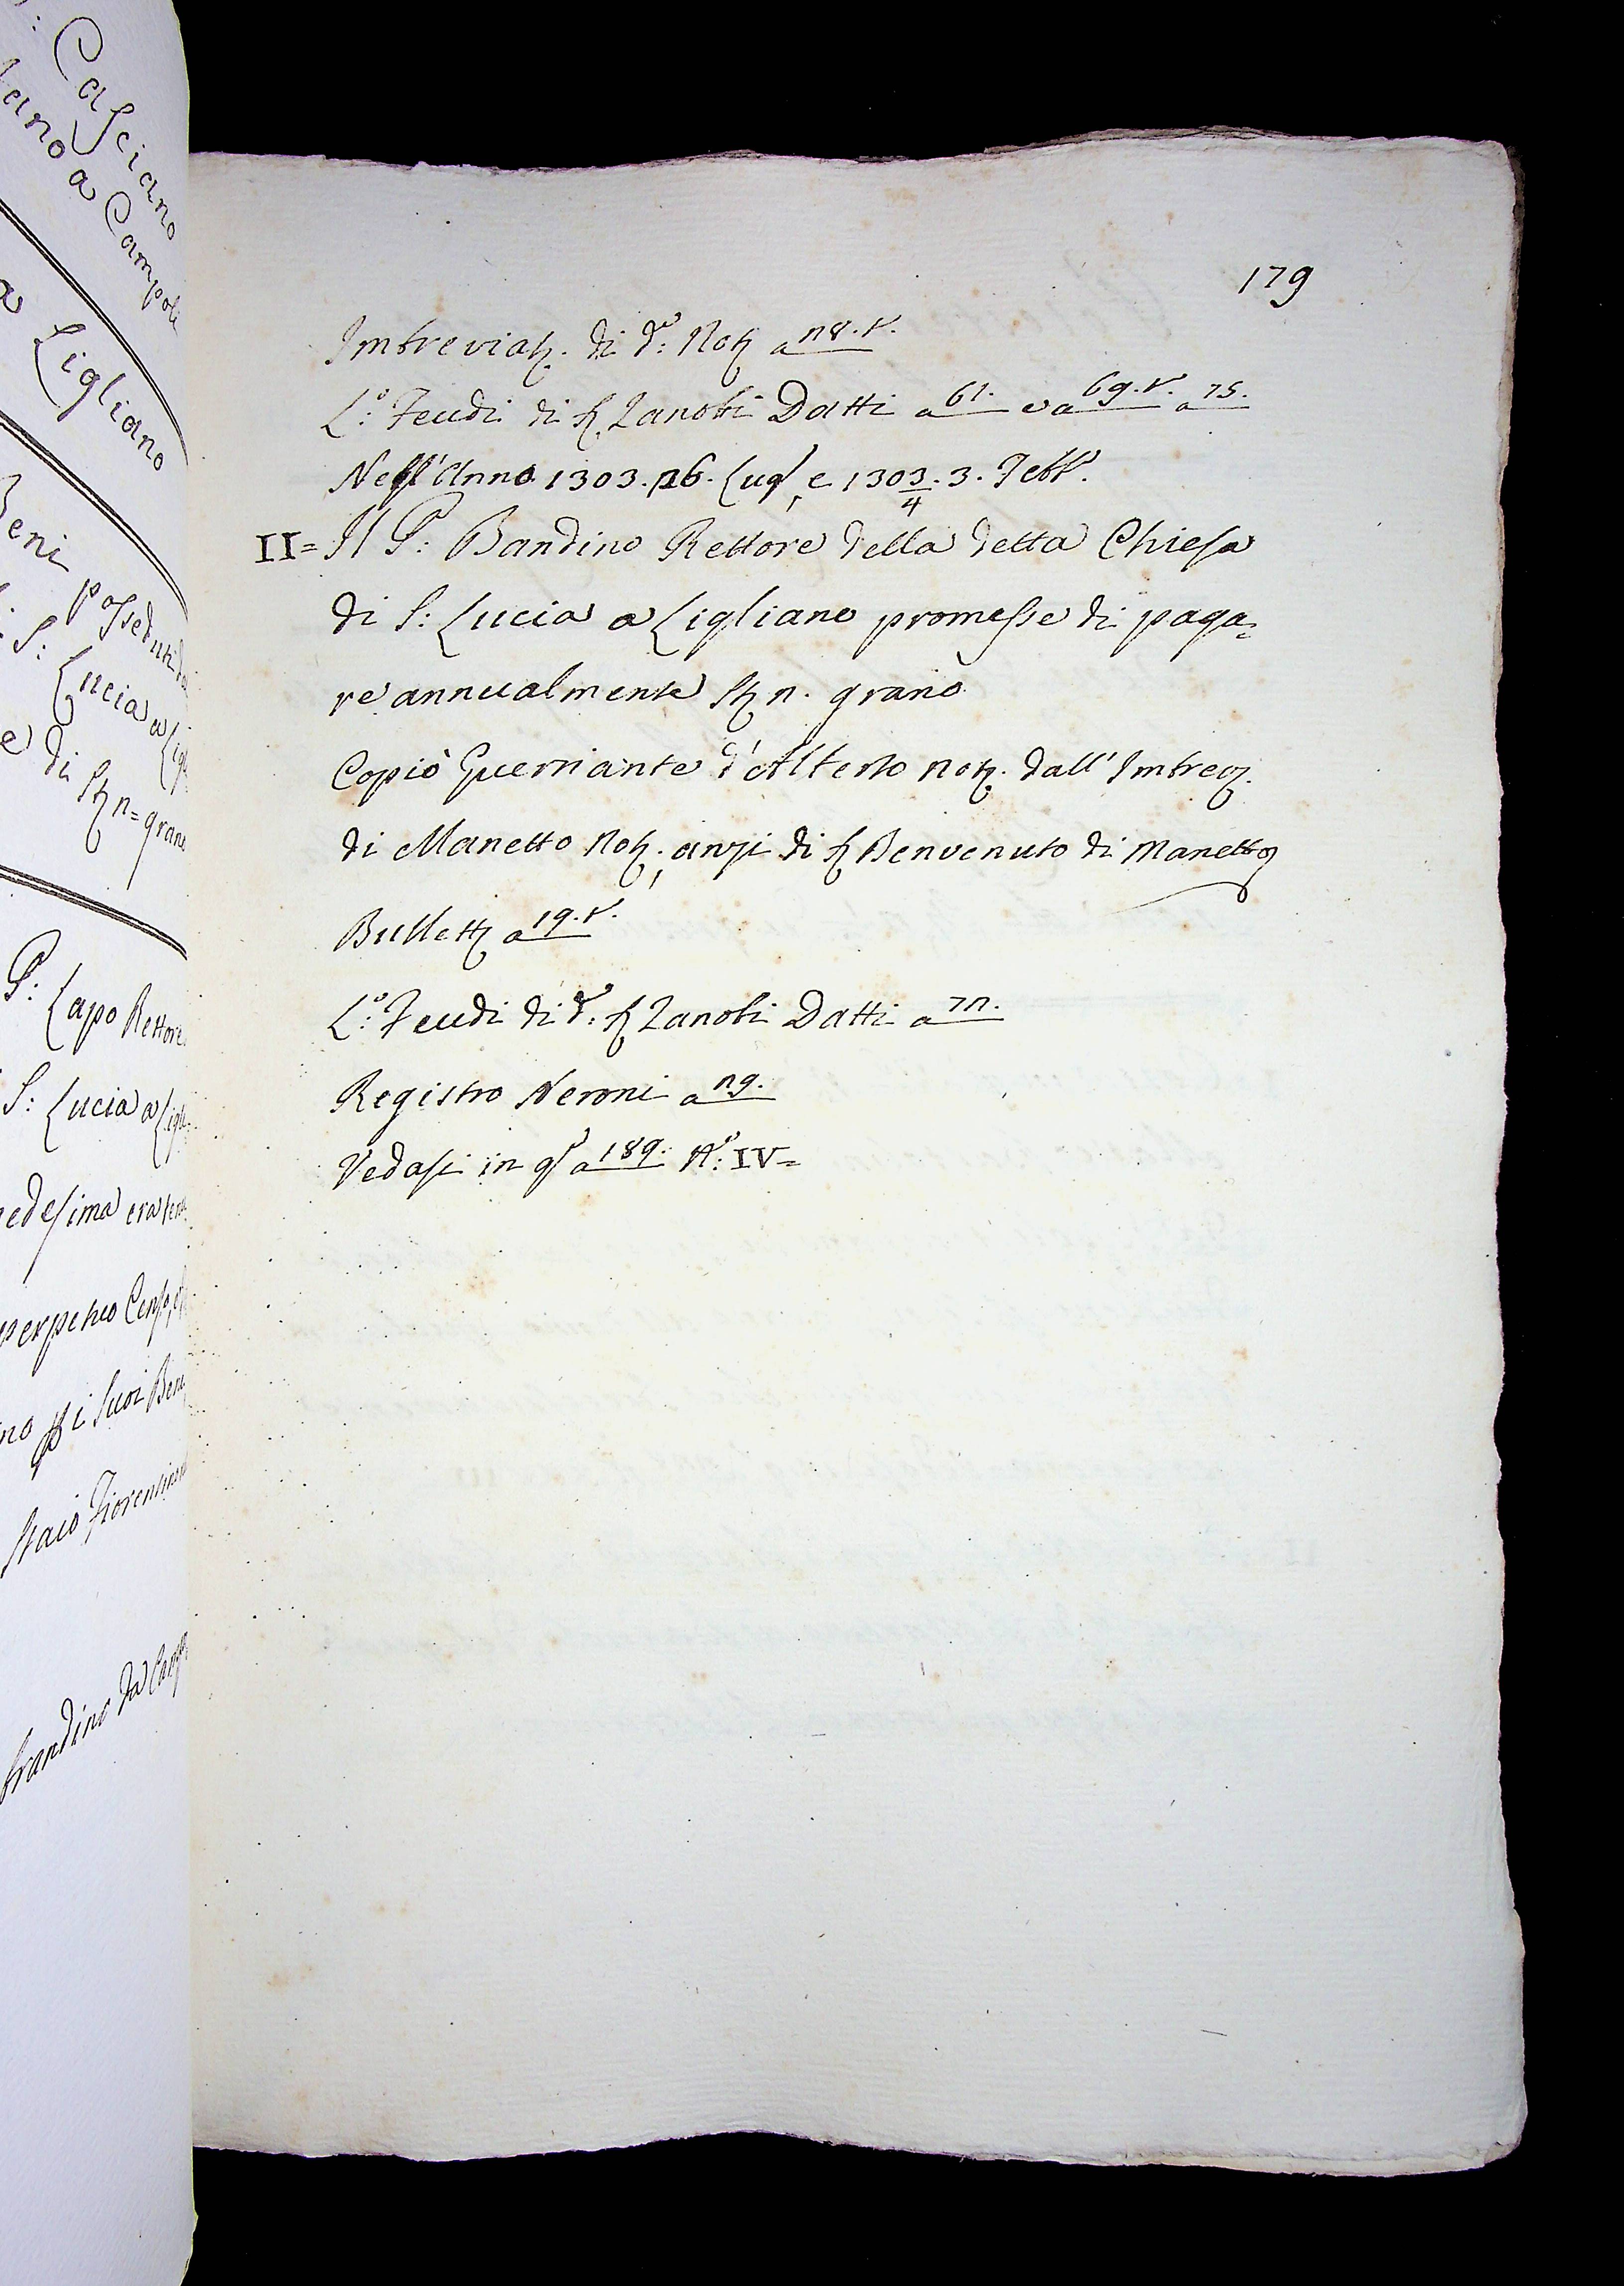 Casciano
a Campoli
Ligliano
Beni posseduti
S: Lucia a
di St n= grano
P: Lapo Rettore
S: Lucia a
perpetuo
i Suoi
Staio Fiorentino
179
Imbreviaz. di d.º: Noz a 28.v.
L.º: Feudi di S. Zanobi Datti a 61. e a 69.v. a 75.
Nell'Anno 1303. 26. Lugl, e 1303/4. 3. Febb.
II= Il P: Bandino Rettore della detta Chiesa
di S: Lucia a Ligliano promesse di paga=
re annualmente St 2. grano
Copiò Guerriante d'Alberto noz. dall'Imbrevz.
di Manetto Noz., anzi di S Benvenuto di Manetto
Bullett a 19.v.
L.º: Feudi di d.º: S Zanobi Datti a 72.
Registro Neroni a 29.
Vedasi in q.º a 189. N.º: IV=